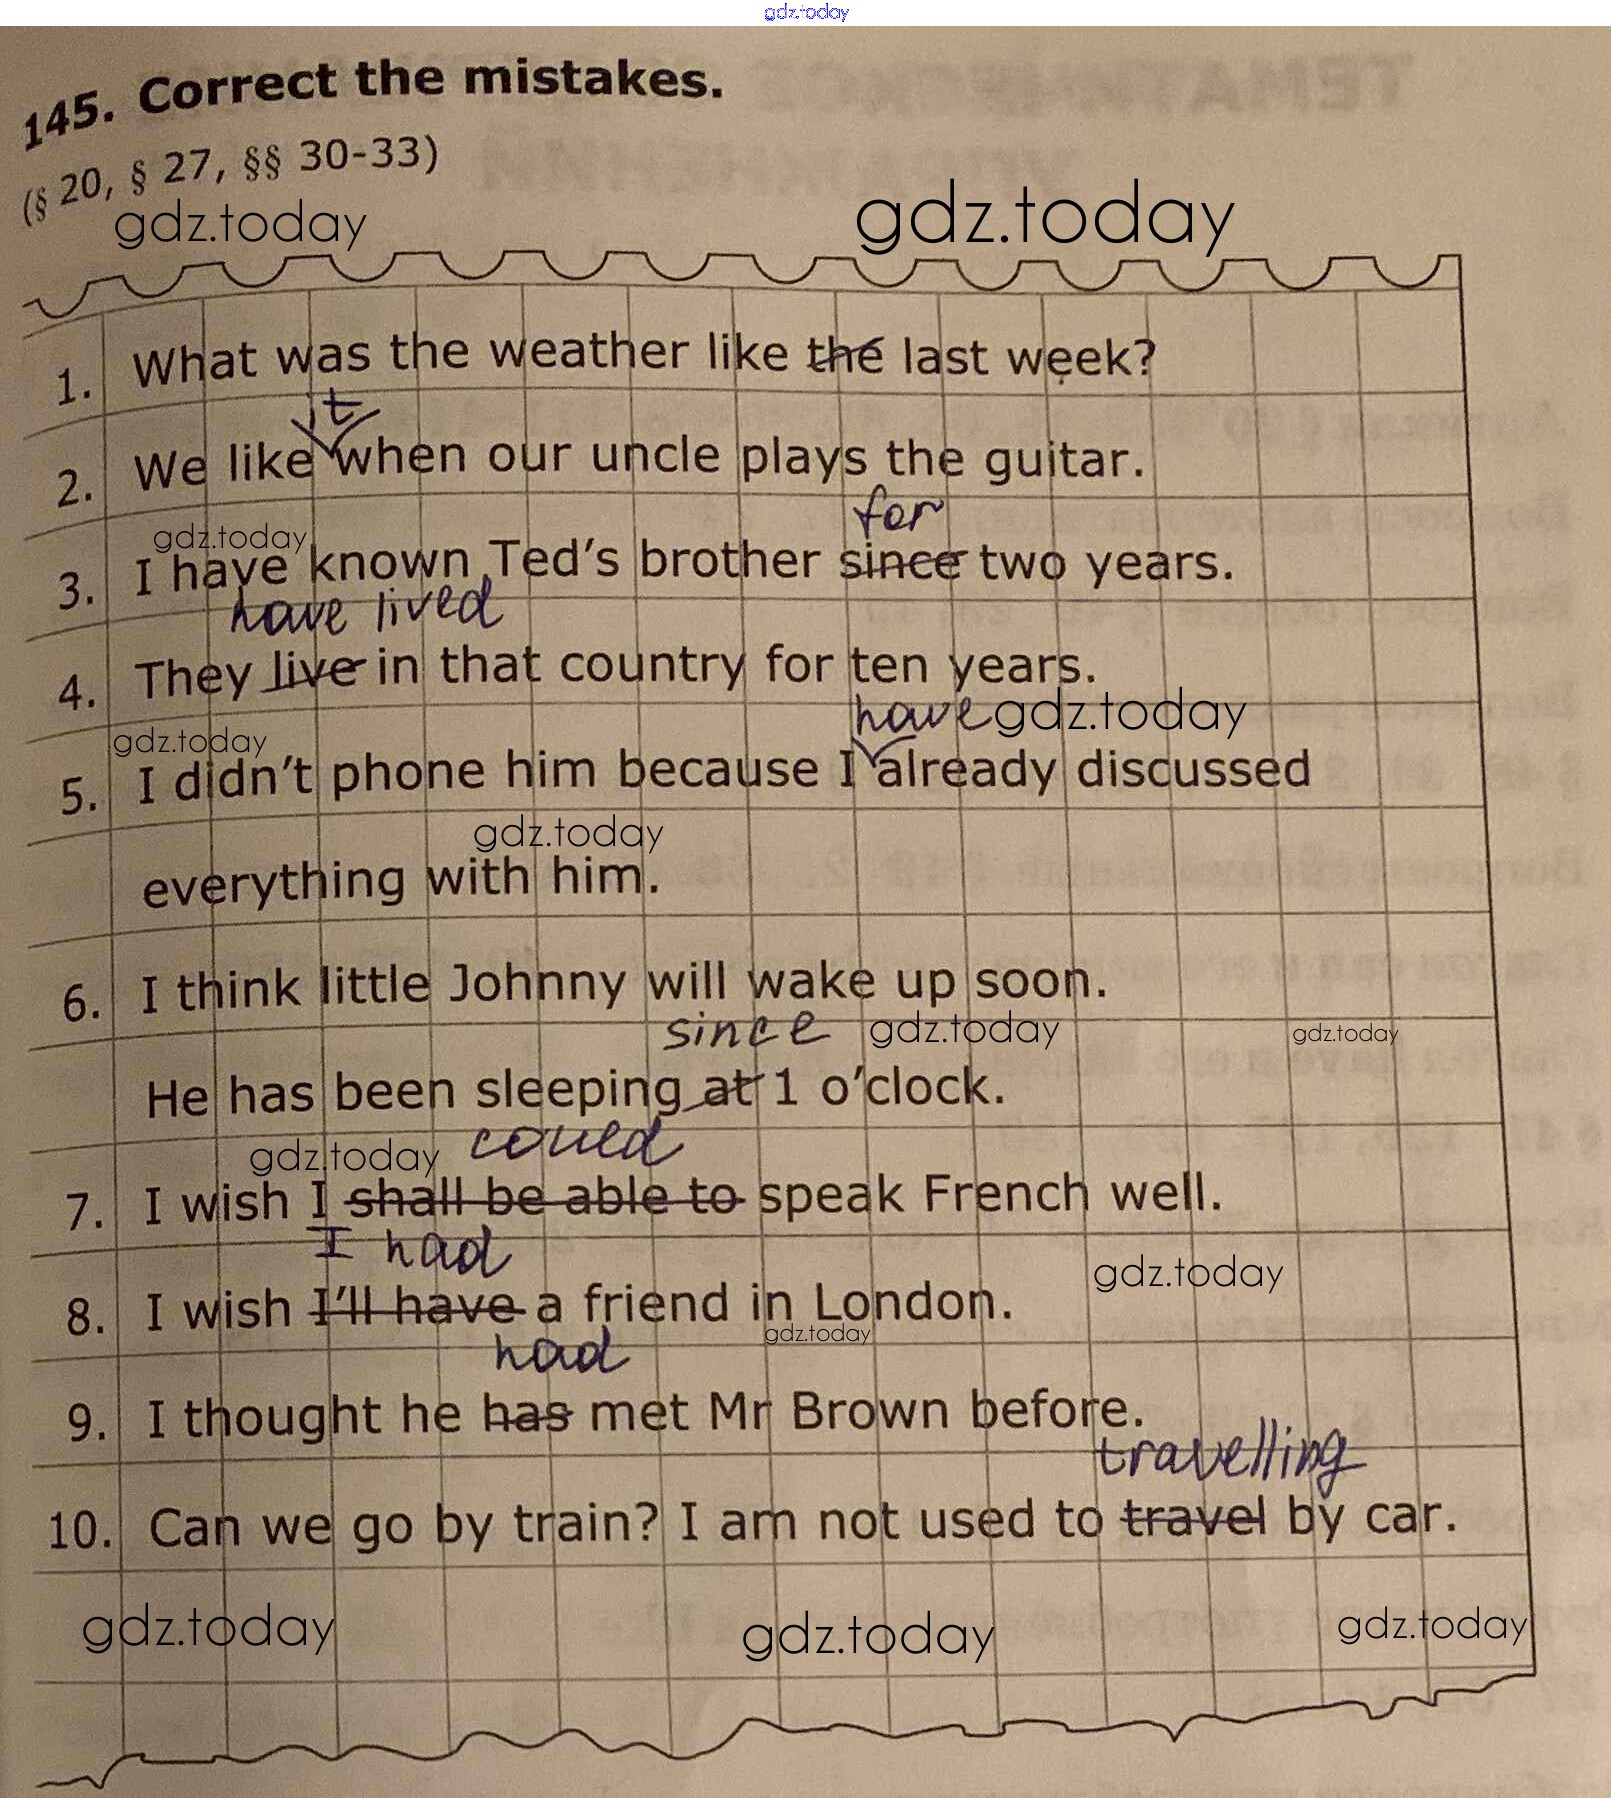 gdz.today
145. Correct the mistakes.
(§ 20, § 27, §§ 30-33)
gdz.today gdz.today
1. What was the weather like the last week?
it
2. We like when our uncle plays the guitar.
for
gdz.today
3. I have known Ted's brother since two years.
have lived
4. They live in that country for ten years.
have gdz.today
gdz.today
5. I didn't phone him because I already discussed
gdz.today
everything with him.
6. I think little Johnny will wake up soon.
since gdz.today gdz.today
He has been sleeping at 1 o'clock.
gdz.today could
7. I wish I shall be able to speak French well.
I had gdz.today
8. I wish I'll have a friend in London.
gdz.today
had
9. I thought he has met Mr Brown before.
travelling
10. Can we go by train? I am not used to travel by car.
gdz.today gdz.today gdz.today